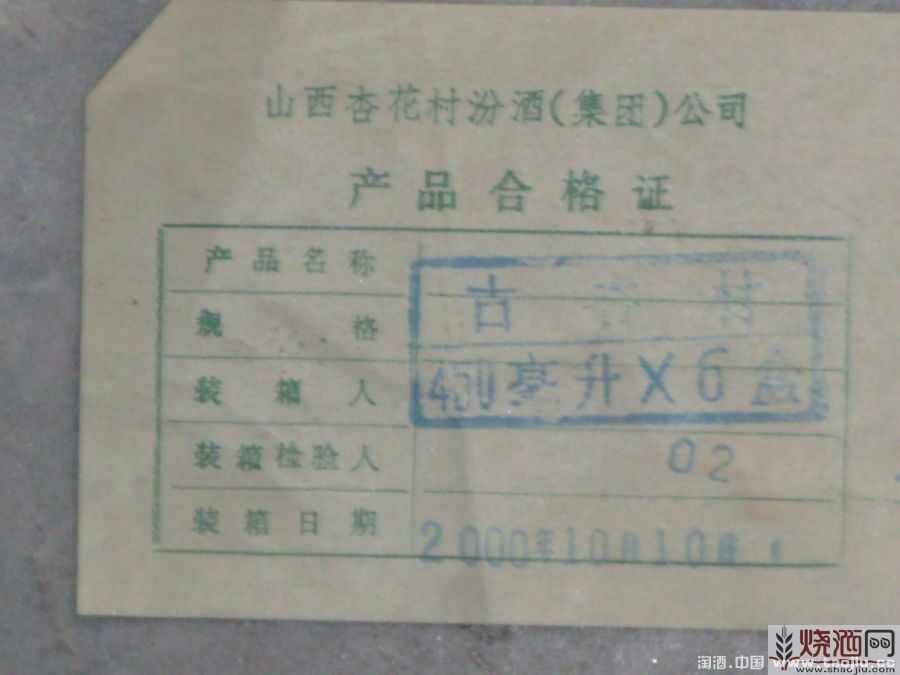 山西杏花村汾酒(集团)公司
产品合格证
产品名称
古
规格
450毫升X6盒
装箱人
装箱检验人 02
装箱日期 2000年10月10
烧酒网
www.shaojiu.com
淘酒.中国